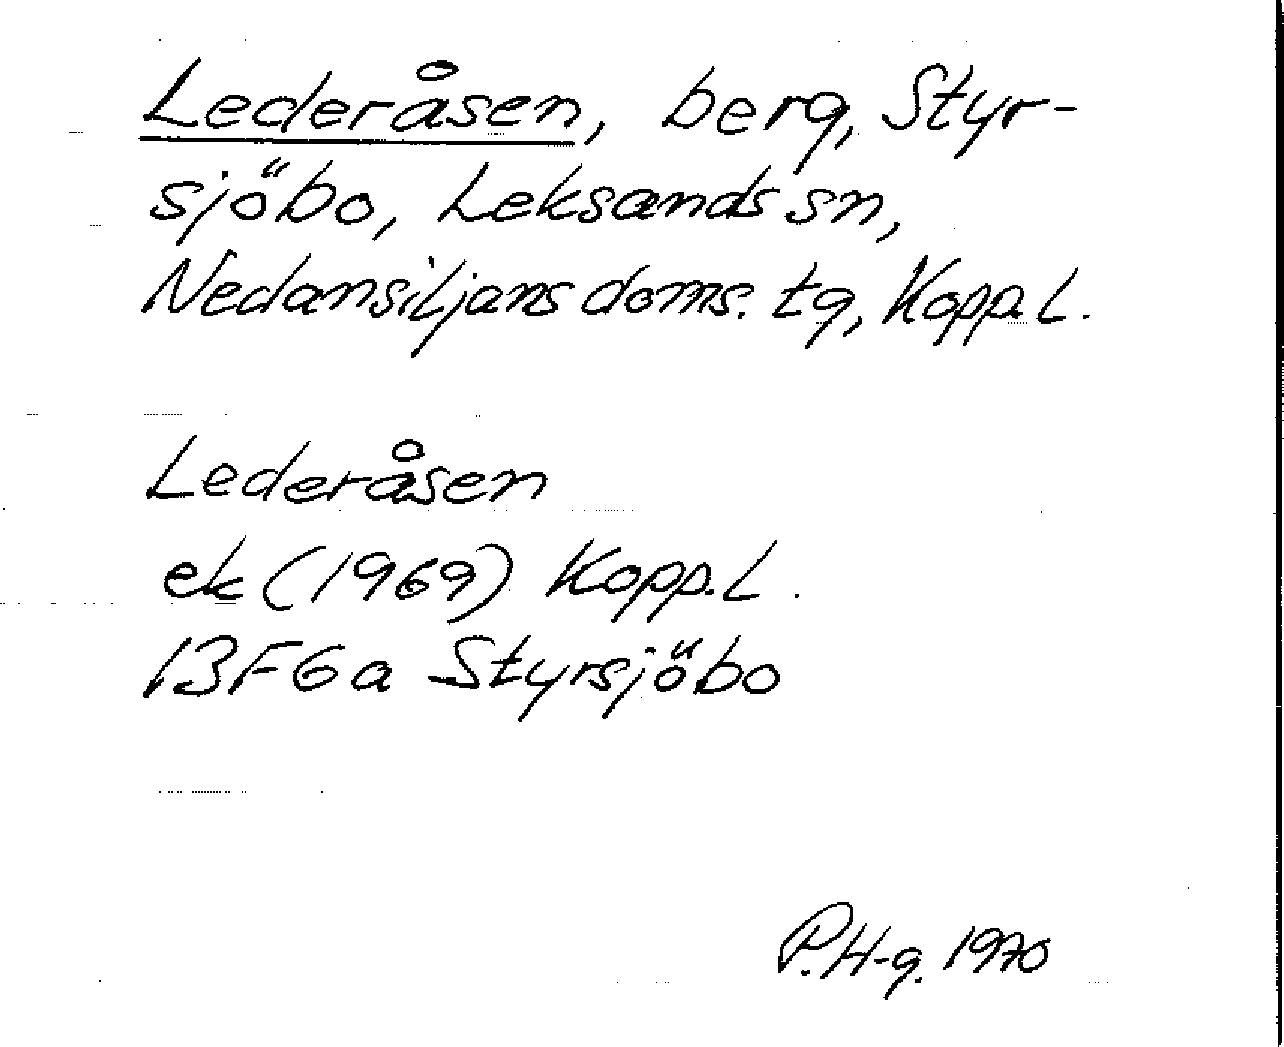 Lederåsen, berg, Styr-
sjöbo, Leksands sn,
Nedansiljans doms. tg, Kopp. L.
Lederåsen
ek (1969) Kopp. L.
13F6a Styrsjöbo
P. H-g. 1970